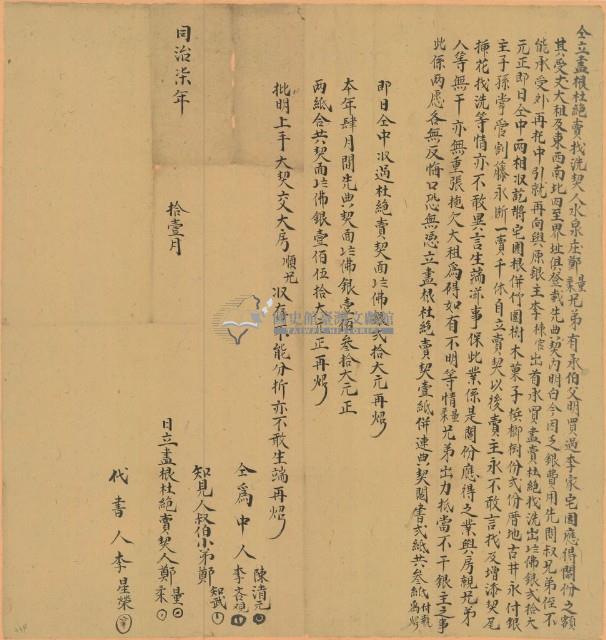 仝立盡根杜絕賣找洗契人水泉庄鄭量柔兄弟有承伯父明買過李家宅園應得鬮份之額
其受丈大租及東西南北四至界址俱登載先典契內明白今因乏銀費用先問叔兄弟侄不
能承受外再托中引就再向與原銀主李棟官出首承買盡賣杜絕找洗出佛銀弍拾大
元正即日仝中兩相收訖將宅園根併竹圍樹木菓子檳榔倒份弍份厝地古井永付銀
主子孫掌管割藤永斷一賣千休自立賣契以後賣主永不敢言找及增添契尾
插花找洗等情亦不敢異言生端滋事保此業係是鬮份應得之業與房親兄弟
人等無干亦無重張拖欠大租為碍如有不明等情量柔兄弟出力抵當不干銀主之事
此係兩愿各無反悔口恐無憑立盡根杜絕賣契壹紙併連典契鬮書弍紙共叁紙付執為炤
即日仝中收過杜絕賣契面佛銀弍拾大元再炤
本年肆月間先典契面佛銀壹佰叁拾大元正
兩紙合共契面佛銀壹佰伍拾大元正再炤
批明上手大契交大房順兄收存不能分折亦不敢生端再炤
仝為中人 陳清元 李
知見人叔伯小弟鄭 知武
日立盡根杜絕賣契人鄭 量 柔
代書人李星榮
同治柒年 拾壹月
國史館臺灣文獻館
TAIWAN HISTORICA